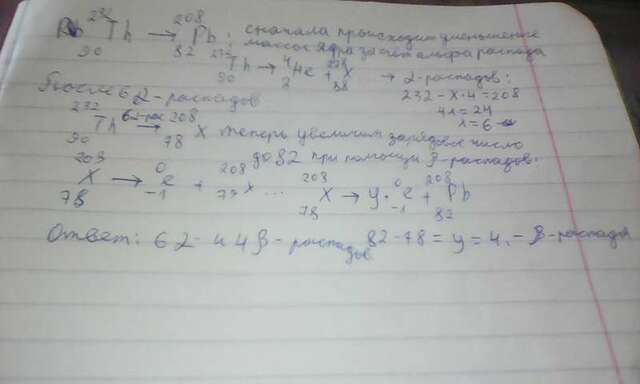 ²³²₉₀Th → ²⁰⁸₈₂Pb; сначала происходит уменьшение
массы ядра за счет альфа распада
²³²₉₀Th → ⁴₂He + ²²⁸₈₈X → α-распадов:
232 - x·4 = 208
4x = 24
x = 6
После 6 α-распадов
²³²₉₀Th 6α-рас → ²⁰⁸₇₈X теперь увеличим зарядовое число
до 82 при помощи β-распадов.
²⁰⁸₇₈X → ⁰₋₁e + ²⁰⁸₇₉X ... ²⁰⁸₇₈X → y·⁰₋₁e + ²⁰⁸₈₂Pb
Ответ: 6 α- и 4 β- распадов 82-78 = y = 4. - β-распадов